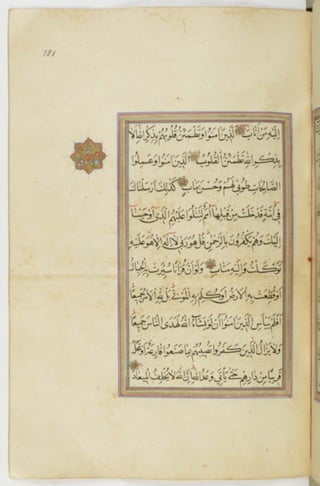 181
اليه من اناب الذين امنوا وتطمئن قلوبهم بذكر الله الا
بذكر الله تطمئن القلوب الذين امنوا وعملوا
الصالحات طوبى لهم وحسن ماب كذلك ارسلناك
في امة قد خلت من قبلها امم لتتلوا عليهم الذي اوحينا
اليك وهم يكفرون بالرحمن قل هو ربي لا اله الا هو عليه
توكلت واليه متاب ولو ان قرانا سيرت به الجبال
او قطعت به الارض او كلم به الموتى بل لله الامر جميعا
افلم يياس الذين امنوا ان لو يشاء الله لهدى الناس جميعا
ولا يزال الذين كفروا تصيبهم بما صنعوا قارعة او تحل
قريبا من دارهم حتى ياتي وعد الله ان الله لا يخلف الميعاد